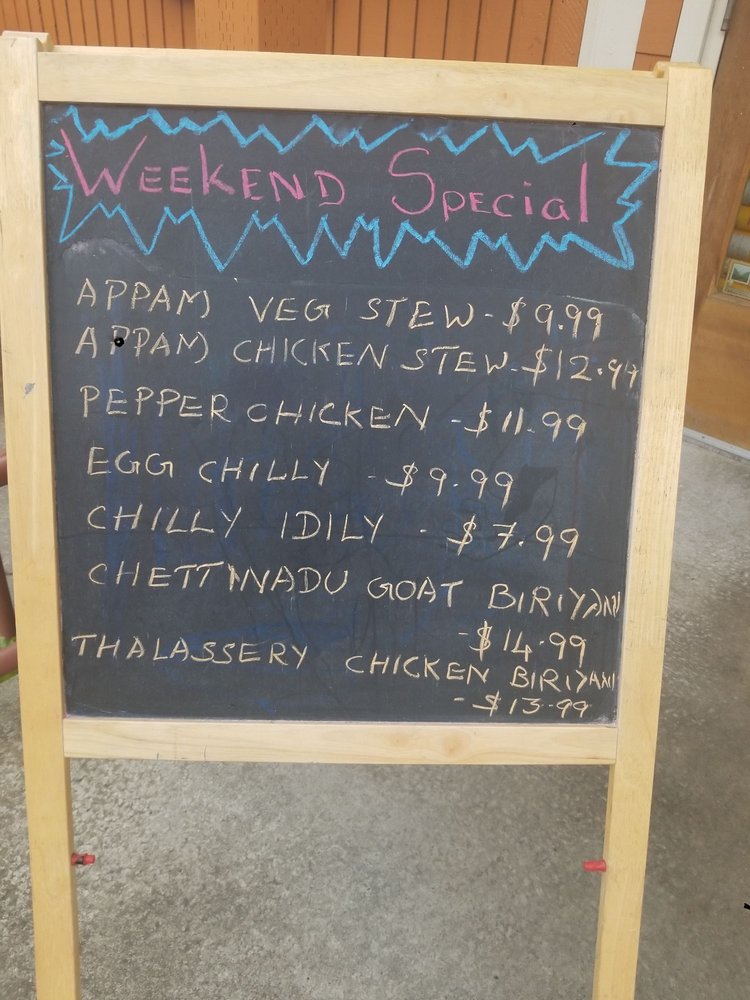 WEEKEND Special
APPAM) VEG STEW - $9.99
APPAM) CHICKEN STEW - $12.99
PEPPER CHICKEN - $11.99
EGG CHILLY - $9.99
CHILLY IDILY - $7.99
CHETTINADU GOAT BIRIYANI
- $14.99
THALASSERY CHICKEN BIRIYANI
- $13.99